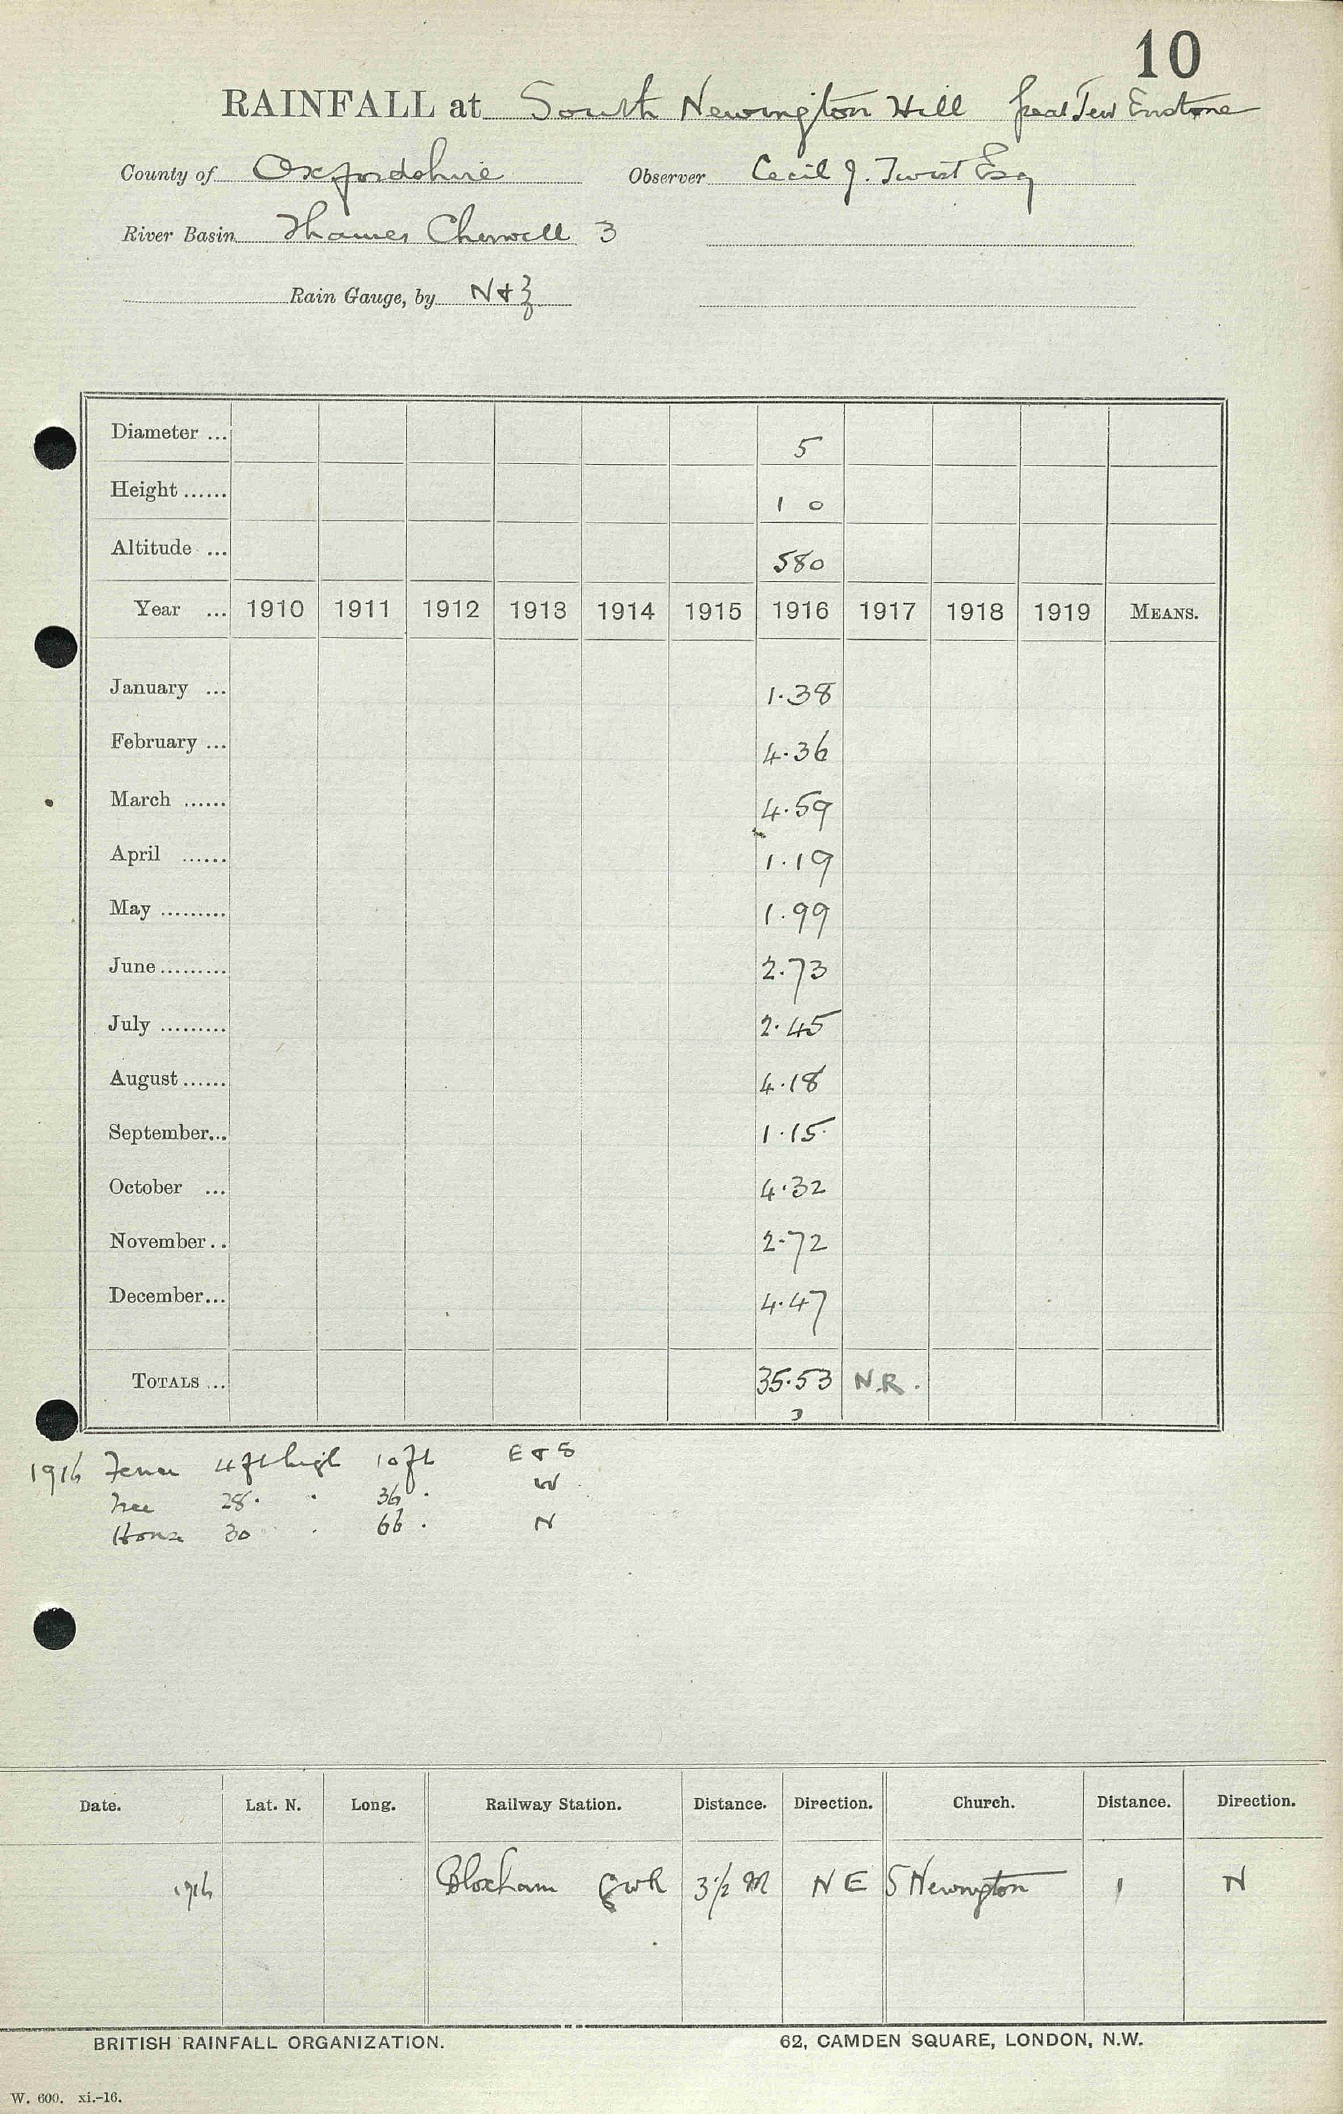 10
RAINFALL at South Newington Hill Great Tew Enstone
County of Oxfordshire Observer Cecil J. Twist Esq
River Basin Thames Cherwell 3
Rain Gauge, by N & Z
Diameter ... 5
Height ...... 1 0
Altitude ... 580
Year ... 1910 1911 1912 1913 1914 1915 1916 1917 1918 1919 MEANS.
January ... 1.38
February ... 4.36
March ...... 4.59
April ...... 1.19
May ......... 1.99
June ......... 2.73
July ......... 2.45
August ...... 4.18
September... 1.15
October ... 4.32
November .. 2.72
December... 4.47
TOTALS ... 35.53 N.R.
3
1916 Fence 4 ft high 10 ft E & S
Tree 28 " 36 " W
House 30 " 66 " N
Date. Lat. N. Long. Railway Station. Distance. Direction. Church. Distance. Direction.
1916 Bloxham GWR 3½ M N E S Newington 1 N
BRITISH RAINFALL ORGANIZATION. 62, CAMDEN SQUARE, LONDON, N.W.
W. 600. xi.-16.